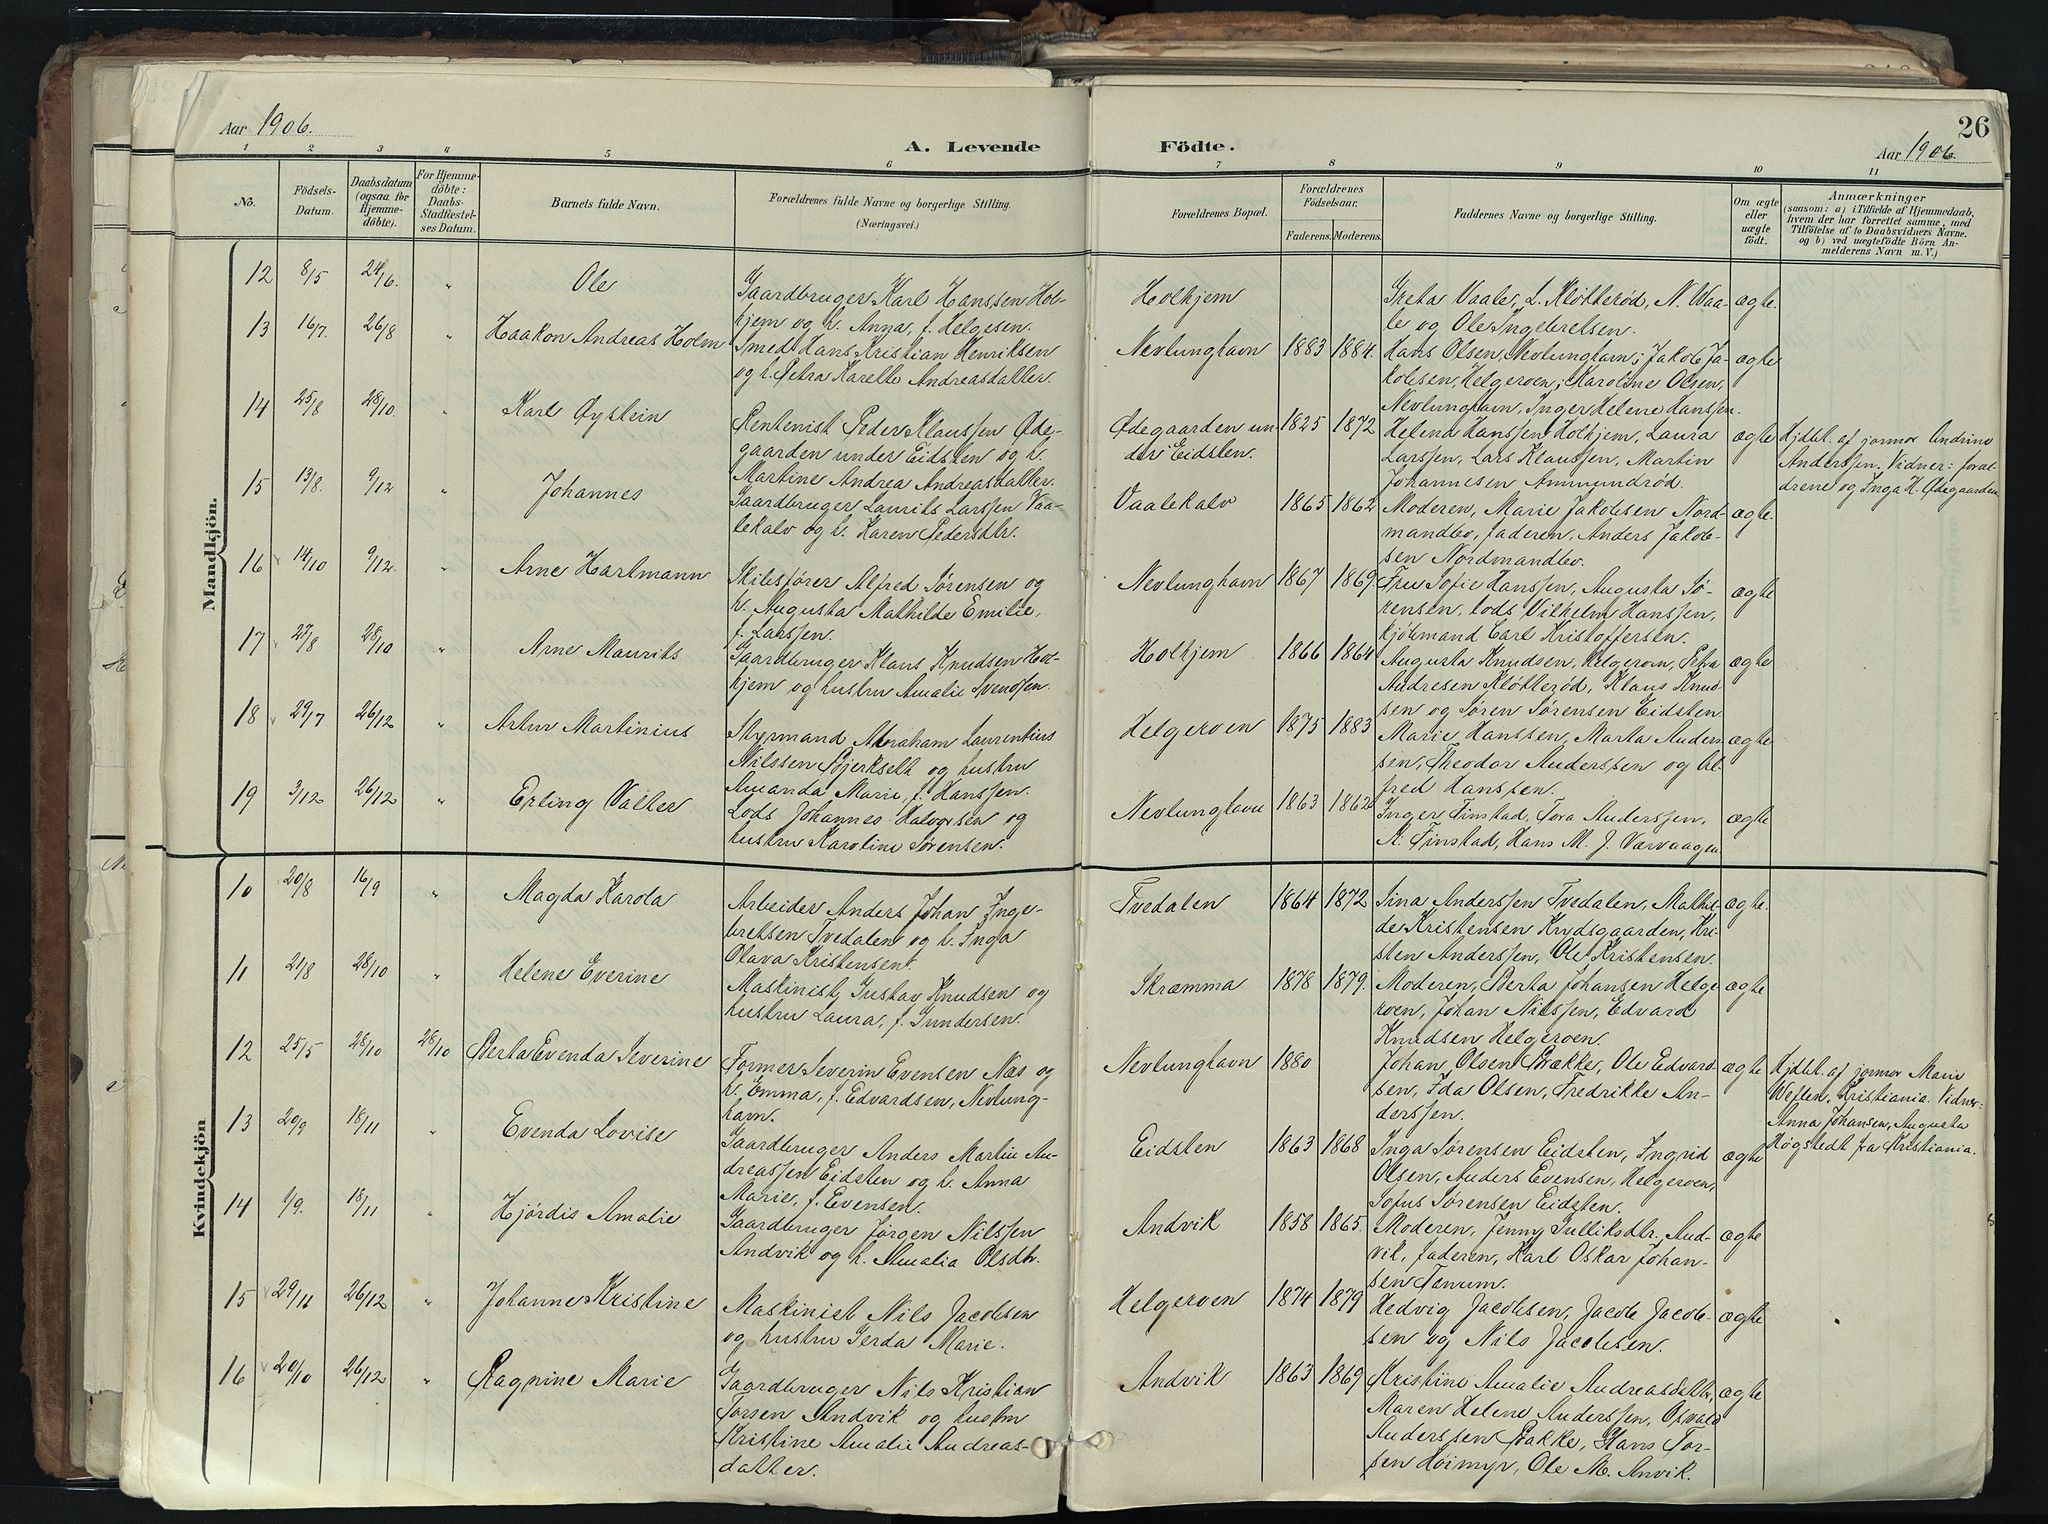 26
Aar 1906.
A. Levende Födte.
Aar 1906.
1 2 3 4 5 6 7 8 9 10 11
No.
Födsels-
Datum.
Daabsdatum
(ogsaa for
Hjemme-
döbte).
For Hjemme-
döbte:
Daabs-
Stadfæstel-
ses Datum.
Barnets fulde Navn.
Forældrenes fulde Navne og borgerlige Stilling.
(Næringsvei.)
Forældrenes Bopæl.
Forældrenes
Födselsaar.
Faderens. Moderens.
Faddernes Navne og borgerlige Stilling.
Om ægte
eller
uægte
födt.
Anmærkninger
(saasom: a) i Tilfælde af Hjemmedaab,
hvem der har forrettet samme, med
Tilföielse af to Daabsvidners Navne.
og b) ved uægtefödte Börn An-
melderens Navn m. V.)
Mandkjön.
12 8/5 24/6. " Ole
Gaardbruger Karl Hanssen Hol-
kjem og h. Anna, f. Helgesen.
Holkjem
Greta Vaale, L. Kløtterød, N. Waa-
le og Ole Ingebretsen.
ægte.
13 16/7. 26/8 " Haakon Andreas Holm
Smed Hans Kristian Henriksen
og h. Petra Karelle Andreasdatter.
Nevlunghavn 1883 1884.
Hans Olsen, Nevlunghavn, Jakob Ja-
kobsen, Helgeroen, Karoline Olsen,
Nevlunghavn, Inger Helene Hanssen.
ægte
14 25/8 28/10. " Karl Øystein
Rentenist Peder Klaussen Øde-
gaarden under Eidsten og h.
Martine Andrea Andreasdatter.
Ødegaarden un-
der Eidsten. 1825 1872
Helena Hanssen Holkjem, Laura
Larssen, Lars Klaussen, Martin
Johannesen Ammundrød.
ægte
Hjdbt. af jormor Andrine
Anderssen. Vidner: foræl-
drene og Inga H. Ødegaarden
15 13/8. 9/12 " Johannes
Gaardbruger Laurits Larssen Vaa-
lekalv og h. Karen Pedersdtr.
Vaalekalv 1865 1862
Moderen, Marie Jakobsen Nord-
mandlev, faderen, Anders Jakob-
sen Nordmandlev.
ægte.
16 14/10 9/12. " Arne Hartmann
Skibsfører Alfred Sørensen og
h. Augusta Mathilde Emilie,
f. Larssen.
Nevlunghavn 1867 1869.
Fru Sofie Hanssen, Augusta Sø-
rensen, Lods Vilhelm Hanssen,
kjøbmand Carl Kristoffersen.
ægte
17 27/8 28/10 " Arne Maurits
Gaardbruger Klaus Knudsen Hol-
kjem og hustru Amalie Svendsen.
Holkjem 1866 1864
Augusta Knudsen, Helgeroen, Petra
Andresen Kløtterød, Klaus Knud-
sen og Søren Sørensen Eidsten.
ægte
18 29/7 26/12 " Artur Martinius
Styrmand Abraham Laurentius
Nilssen Bjerkselt og hustru
Amanda Marie, f. Hanssen.
Helgeroen 1875 1883
Marie Hanssen, Marta Anders-
sen, Theodor Anderssen og Al-
fred Hanssen.
ægte
19 3/12 26/12 " Erling Valter
Lods Johannes Halvorsen og
hustru Karoline Sørensen.
Nevlunghavn 1863 1862
Inger Finstad, Tora Anderssen,
A. Finstad, Hans M. J. Værvaagen
ægte
Kvindekjön
10 20/8 16/9 " Magda Karola
Arbeider Anders Johan Inge-
bretsen Tvedalen og h. Inga
Olava Kristensen.
Tvedalen 1864 1872
Sina Anderssen Tvedalen, Mathil-
de Kristensen Krydsgaarden, Kri-
sten Anderssen, Ole Kristensen.
ægte.
11 21/8 28/10 " Helene Everine
Maskinist Gustav Knudsen og
hustru Laura, f. Gundersen.
Skræmma 1878 1879.
Moderen, Berta Johansen Helge-
roen, Johan Nilssen, Edvard
Knudsen Helgeroen.
ægte
12 25/5 28/10 28/10 Berta Evenda Severine
Former Severin Evensen Næs og
h. Emma, f. Edvardsen, Nevlung-
havn.
Nevlunghavn 1880
Johan Olsen Bakke, Ole Edvard-
sen, Ida Olsen, Fredrikke An-
derssen.
ægte
Hjdbt. af jormor Marie
Weften, Kristiania. Vidner:
Anna Johansen, Augusta
Høgstedt fra Kristiania.
13 20/9 18/11 " Evenda Lovise
Gaardbruger Anders Martin An-
dreassen Eidsten og h. Anna
Marie, f. Evensen.
Eidsten 1863 1868
Inga Sørensen Eidsten, Ingrid
Olsen, Anders Evensen, Helgeroen,
Sofus Sørensen Eidsten.
ægte
14 1/9. 18/11 " Hjørdis Amalie
Gaardbruger Jørgen Nilssen
Andvik og h. Amalia Olsdtr.
Andvik 1858 1865.
Moderen, Jenny Gulliksdtr. And-
vik, faderen, Karl Oskar Johan-
sen Tanum.
ægte
15 29/11 26/12 " Johanne Kristine
Maskinist Nils Jacobsen
og hustru Gerda Marie.
Helgeroen 1874 1879
Hedvig Jacobsen, Jacob Jacob-
sen og Nils Jacobsen.
ægte
16 20/10 26/12 " Ragnine Marie
Gaardbruger Nils Kristian
Torsen Andvik og hustru
Kristine Amalie Andreas-
datter.
Andvik 1863 1869
Kristine Amalie Andreasdatter,
Maren Helene Anderssen, Osvald
Anderssen Bakke, Hans Tor-
sen Høimyr, Ole M. Anvik.
ægte